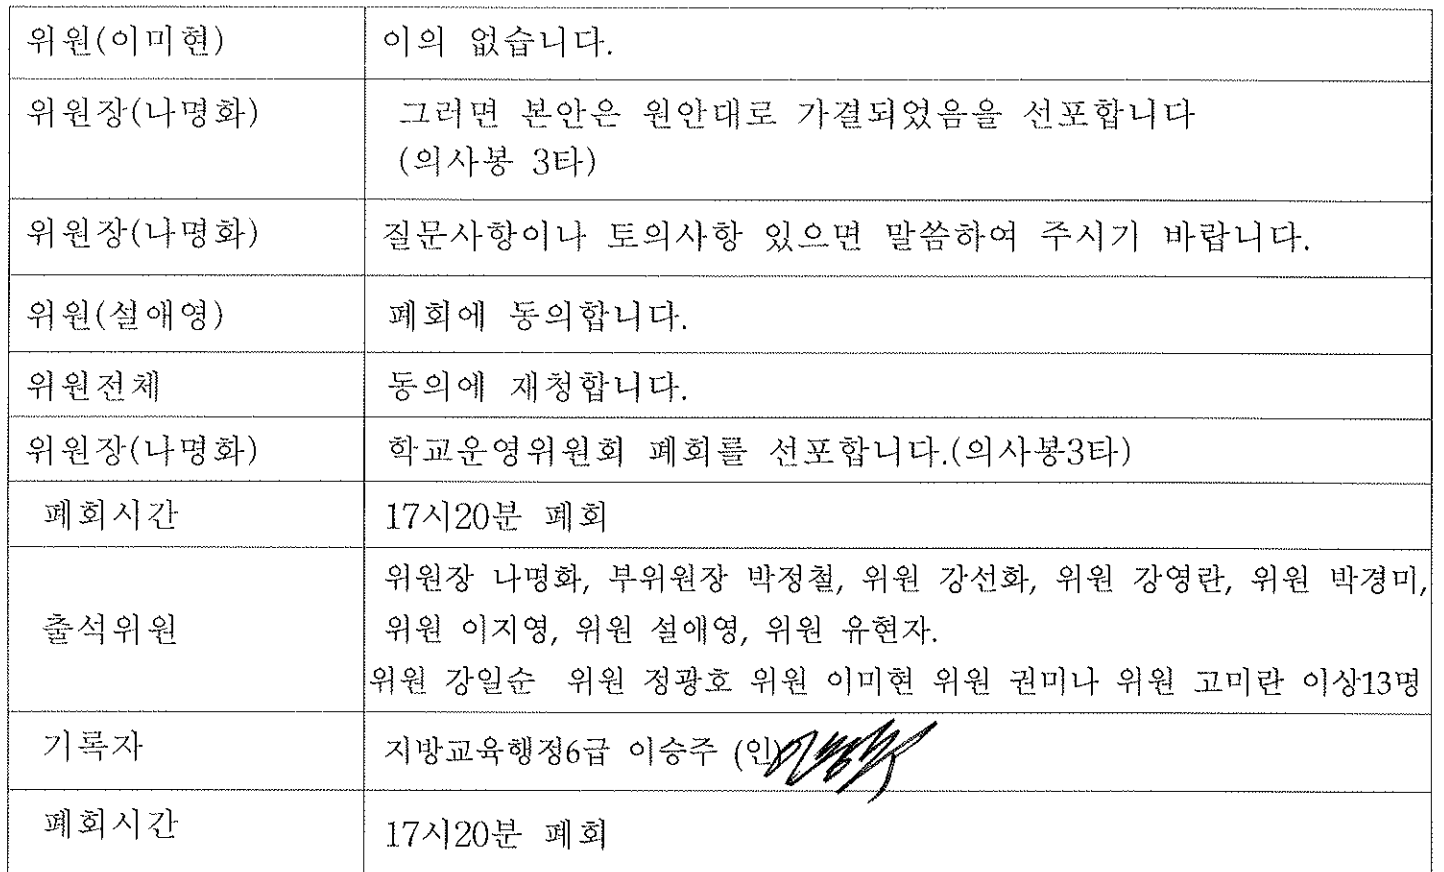 위원(이미현) 이의 없습니다.
위원장(나명화) 그러면 본안은 원안대로 가결되었음을 선포합니다
(의사봉 3타)
위원장(나명화) 질문사항이나 토의사항 있으면 말씀하여 주시기 바랍니다.
위원(설애영) 폐회에 동의합니다.
위원전체 동의에 재청합니다.
위원장(나명화) 학교운영위원회 폐회를 선포합니다.(의사봉3타)
폐회시간 17시20분 폐회
출석위원
위원장 나명화, 부위원장 박정철, 위원 강선화, 위원 강영란, 위원 박경미,
위원 이지영, 위원 설애영, 위원 유현자.
위원 강일순 위원 정광호 위원 이미현 위원 권미나 위원 고미란 이상13명
기록자 지방교육행정6급 이승주 (인)
폐회시간 17시20분 폐회